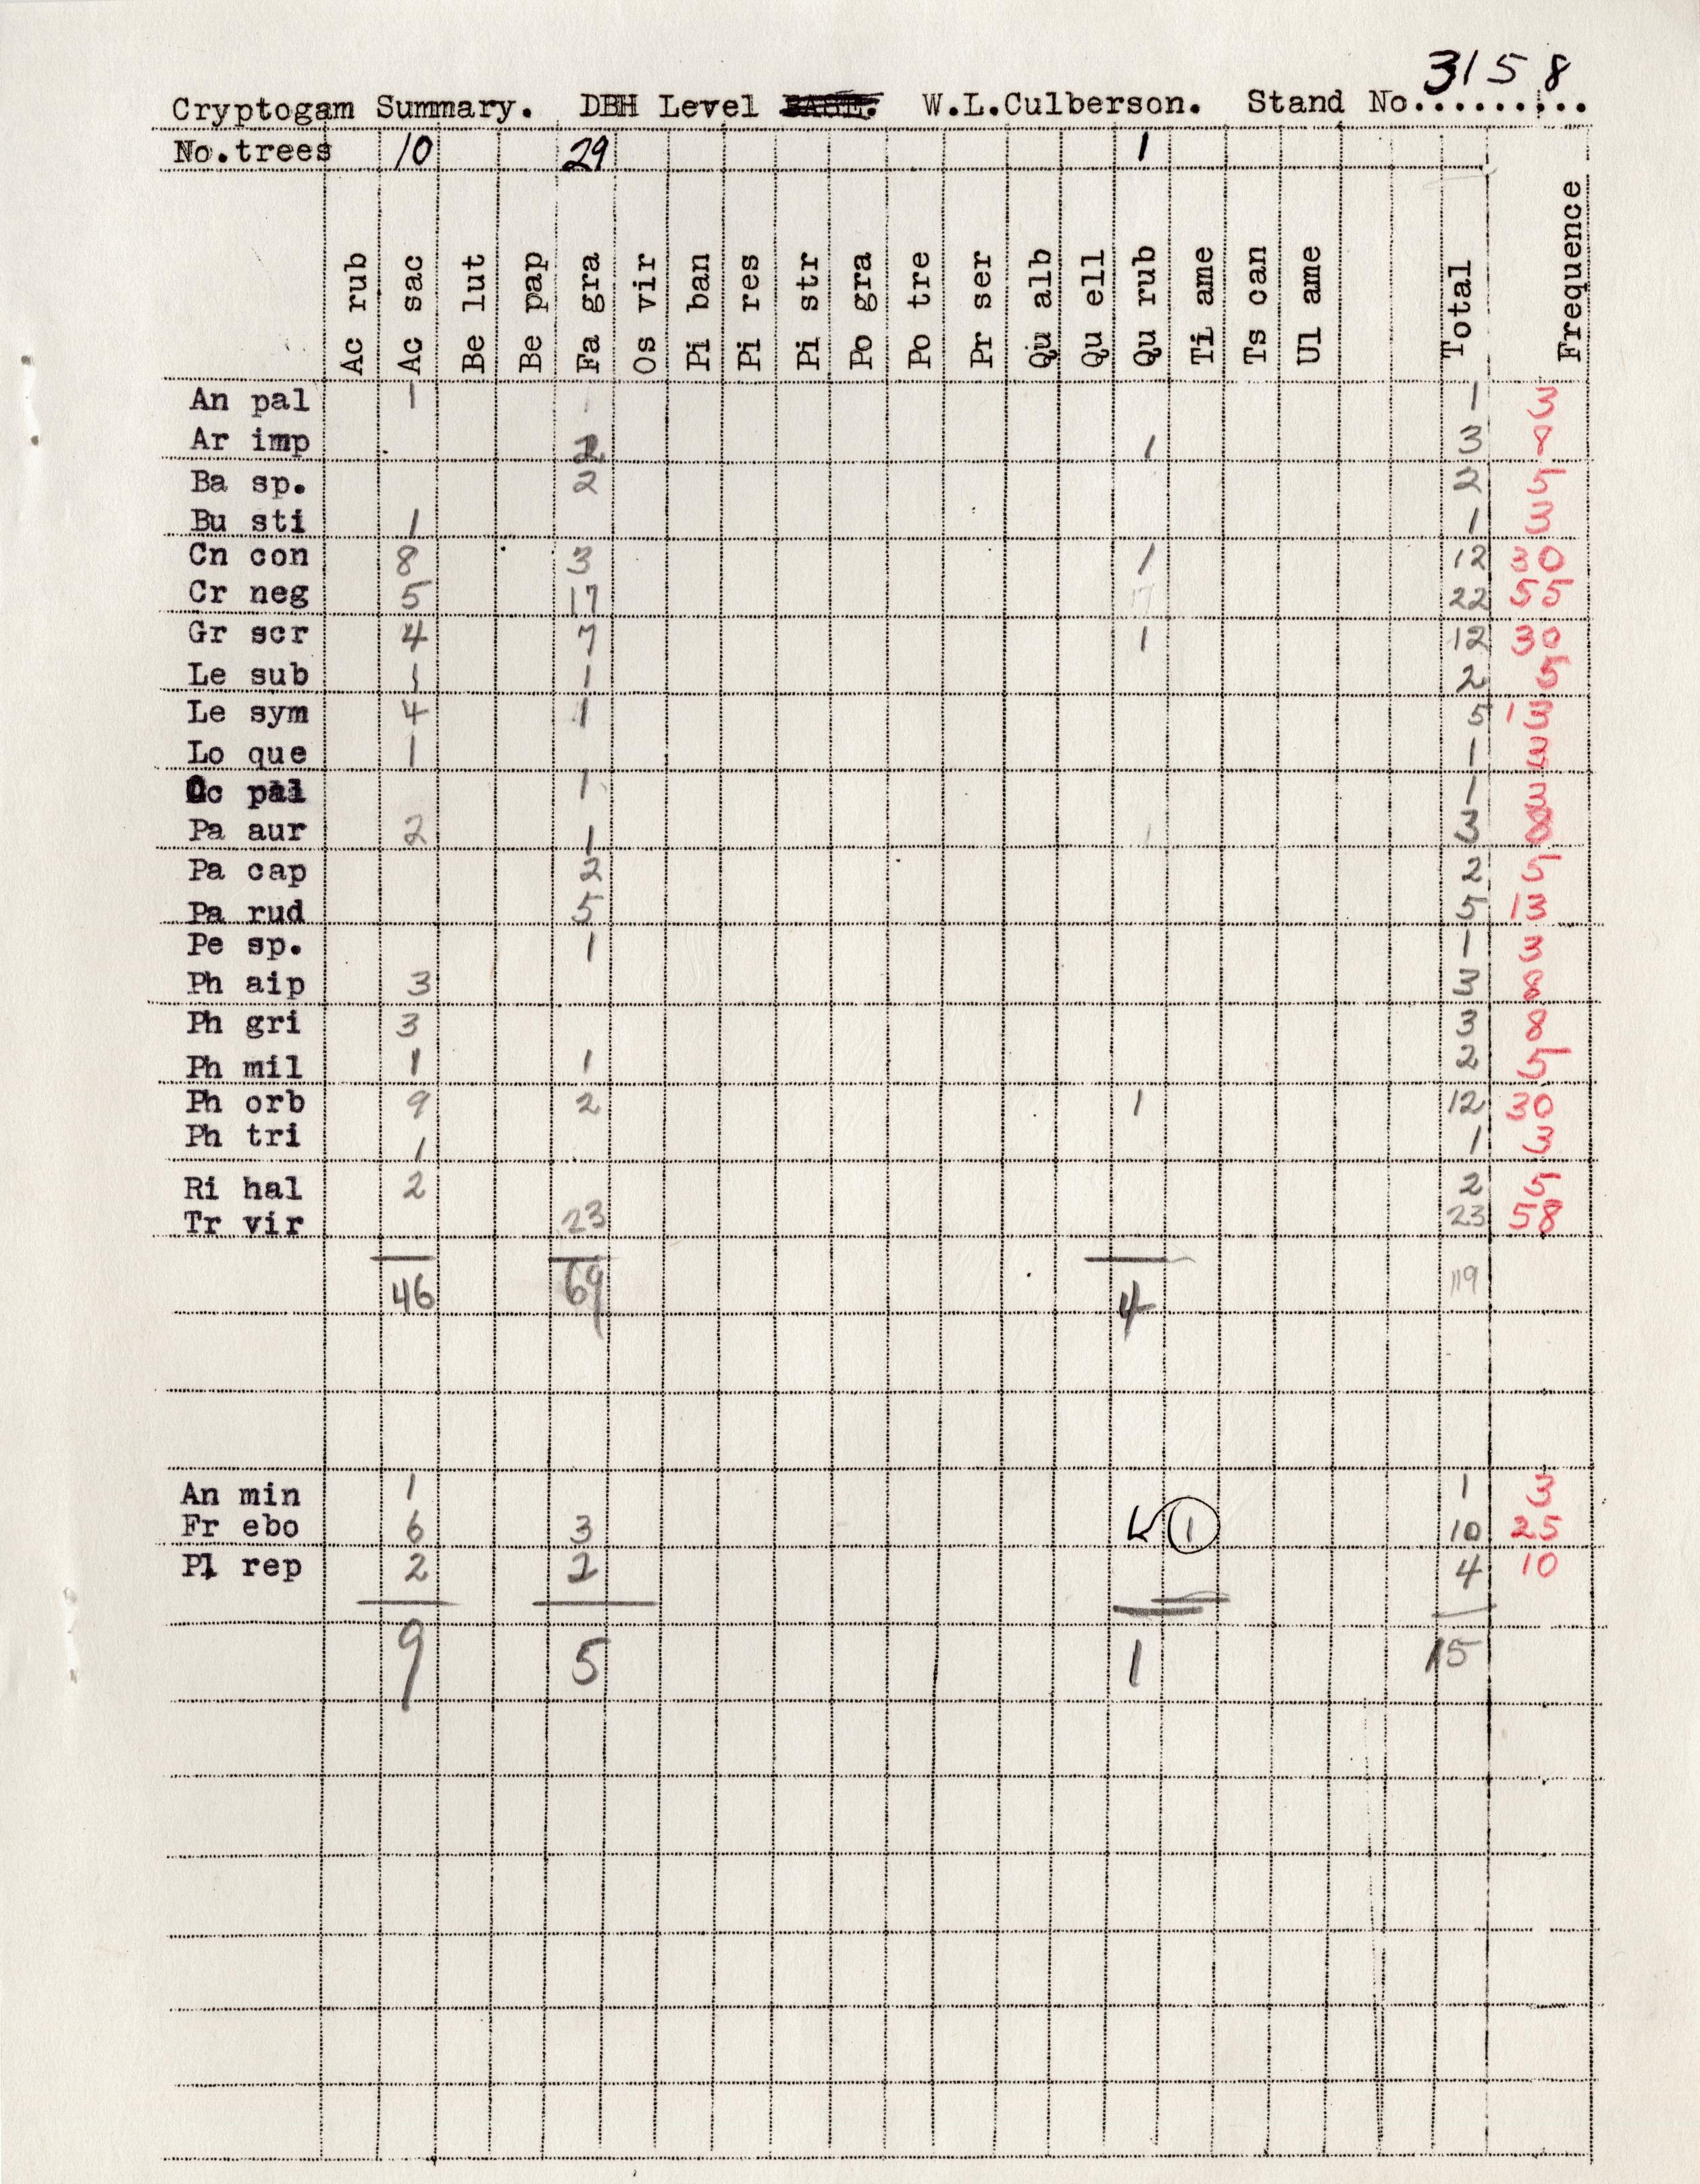 3158
Cryptogam Summary. DBH Level W.L.Culberson. Stand No.........
No.trees 10 29 1
Ac rub Ac sac Be lut Be pap Fa gra Os vir Pi ban Pi res Pi str Po gra Po tre Pr ser Qu alb Qu ell Qu rub Ti ame Ts can Ul ame Total Frequence
An pal 1 1 3
Ar imp 2 1 3 8
Ba sp. 2 2 5
Bu sti 1 1 3
Cn con 8 3 1 12 30
Cr neg 5 17 22 55
Gr scr 4 7 1 12 30
Le sub 1 1 2 5
Le sym 4 1 5 13
Lo que 1 1 3
Oc pal 1 1 3
Pa aur 2 1 3 8
Pa cap 2 2 5
Pa rud 5 5 13
Pe sp. 1 1 3
Ph aip 3 3 8
Ph gri 3 3 8
Ph mil 1 1 2 5
Ph orb 9 2 1 12 30
Ph tri 1 1 3
Ri hal 2 2 5
Tr vir 23 23 58
46 69 4 119
An min 1 1 3
Fr ebo 6 3 1 10 25
Pl rep 2 2 4 10
9 5 1 15